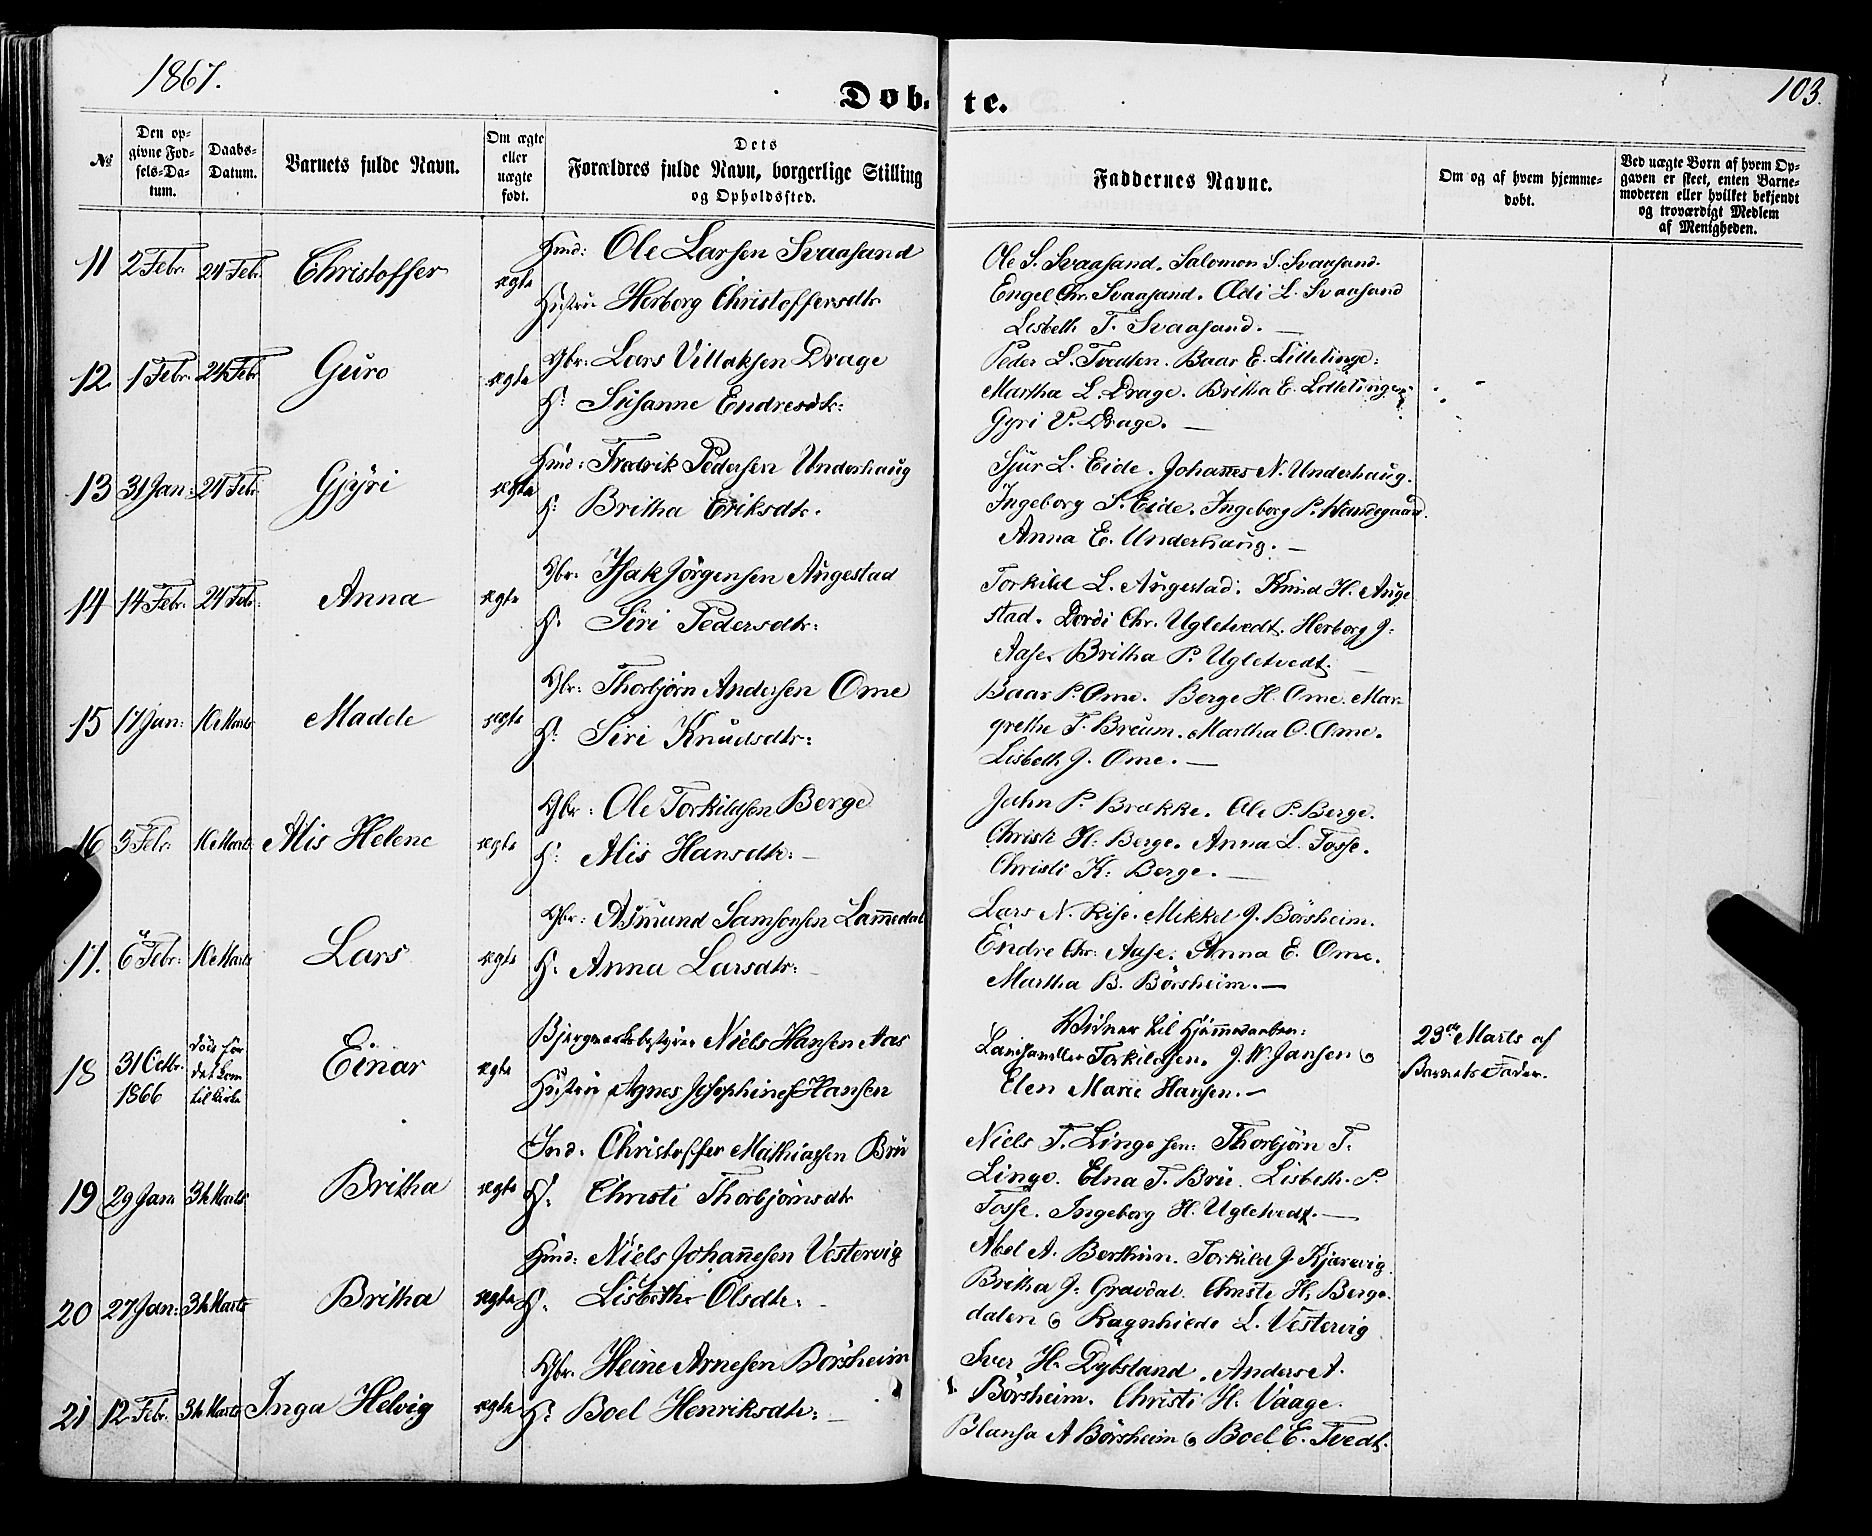 1867.
103.
Døb- te.
№
Den opgivne Fødsels-Datum.
Daabs-Datum.
Barnets fulde Navn.
Om ægte eller uægte født.
Dets Forældres fulde Navn, borgerlige Stilling og Opholdssted.
Faddernes Navne.
Om og af hvem hjemmedøbt.
Ved uægte Børn af hvem Opgaven er skeet, enten Barnemoderen eller hvilket bekjendt og troværdigt Medlem af Menigheden.
11 2 Febr 24 Febr. Christoffer ægte
Huusm: Ole Larsen Svaasand
Hustru Herborg Christoffersdtr
Ole S. Svaasand. Salomon S. Svaasand.
Engel Chr. Svaasand. Adi L. Svaasand
Lisbeth T. Svaasand. —
12. 1 Febr. 24 Febr Guro ægte
Gbr: Lars Villaksen Drage
H: Susanne Endresdtr:
Peder L. Tvedten. Baar E. Lilletinge:
Martha L. Drage. Britha E. Lilletinge.
Gyri V. Drage. —
13 31 Jan: 24 Febr Gjÿri ægte
Huusm: Fredrik Pedersen Underhaug
H: Britha Eriksdtr.
Sjur L. Eide. Johannes N. Underhaug.
Ingeborg S. Eide. Ingeborg P. Handegaard.
Anna E. Underhaug. —
14 14 Febr. 24 Febr: Anna ægte
Gbr: Isak Jörgensen Augestad
H. Siri Pedersdtr:
Torkild L. Augestad. Knud H. Auge
stad. Dordi Chr. Ugletvedt. Herborg J:
Aase. Britha P. Ugletvedt. —
15 17 Jan: 10 Marts Madele ægte
Gbr: Thorbjørn Andersen Ome
H: Siri Knudsdtr:
Baar P. Ome. Berge H. Ome. Mar
grethe T. Breum. Martha O. Ome.
Lisbeth J. Ome. —
16 3 Febr 10 Marts Alis Helene ægte
Gbr: Ole Torkildsen Berge
H: Alis Hansdtr: —
John P. Brække. Ole P. Berge.
Christi H. Berge. Anna L. Fosse.
Christi K: Berge. —
17. 6 Febr: 10 Marts Lars ægte
Gbr: Asmund Samsonsen Lammedal
H. Anna Larsdtr: —
Lars N. Rise. Mikkel J. Börsheim.
Endre Chr: Aase. Anna E. Ome.
Martha B. Börsheim. —
18 31 Octbr. 1866 Døde før det kom til Kirke Einar ægte
Bjergværksbestyrer Niels Hansen Aas
Hustru Agnes Josephine Hansen
Vidner til Hjemmedaaben:
Landhandler Torkildsen. J. W. Jansen &
Elen Marie Hansen. —
23de Marts af
Barnets Fader.
19 29 Jan 31 Marts Britha ægte
Ind. Christoffer Mathiasen Bru
H. Christi Thorbjörnsdtr
Niels T. Linge sen: Thorbjörn T.
Linge. Elna T. Bru. Lisbeth. P.
Fosse. Ingeborg H. Ugletvedt. —
20 27 Jan: 31 Marts Britha ægte
Huusm: Niels Johannesen Vestervig
H. Lisbeth Olsdtr: —
Abel A. Berthun. Torkild J. Kjærevig.
Britha J. Gravdal. Christi H. Berge-
dalen & Ragnhilde L. Vestervig
21 12 Febr. 31 Marts Inga Helvig ægte
Gbr. Heine Arnesen Börsheim
H: Boel Henriksdtr: —
Iver H. Dybsland. Anders A.
Börsheim. Christi H. Vaage.
Blansa A Börsheim & Boel E. Tvedt.